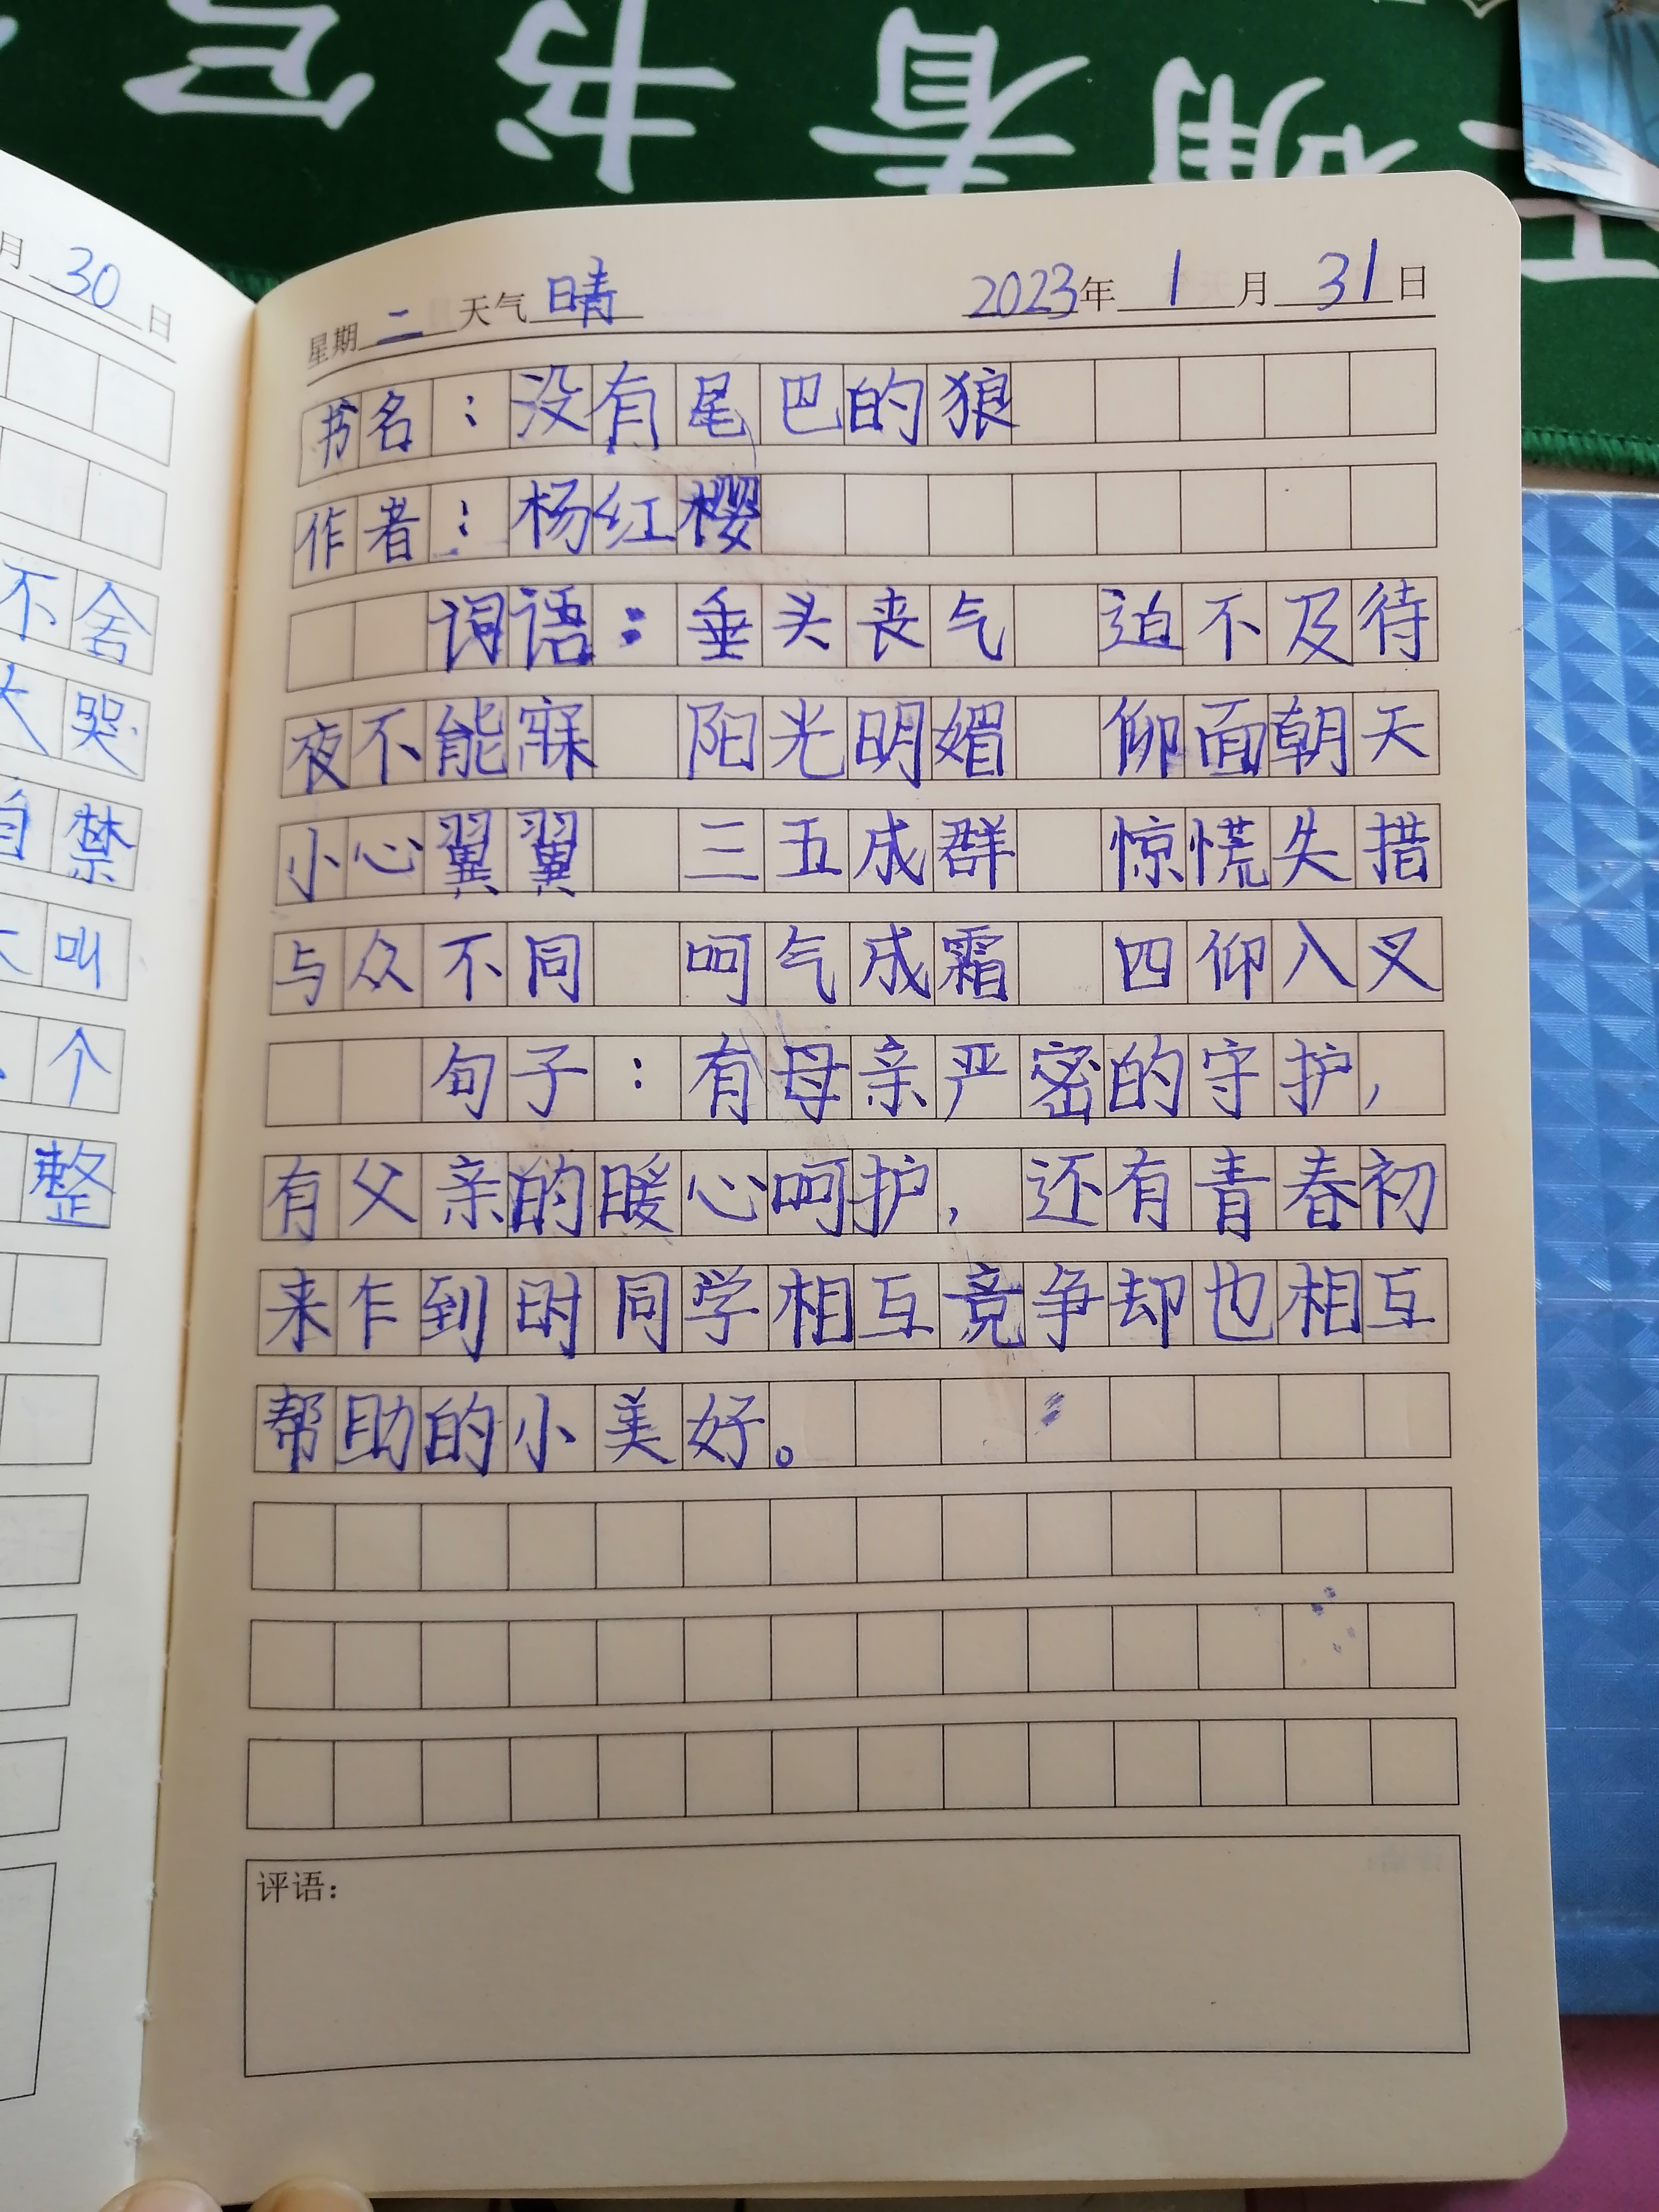 月 30 日
不舍
大哭
自禁
叫
个
整
星期 二 天气 晴 2023年 1 月 31 日
书名：没有尾巴的狼
作者：杨红樱
词语：垂头丧气 迫不及待
夜不能寐 阳光明媚 仰面朝天
小心翼翼 三五成群 惊慌失措
与众不同 呵气成霜 四仰八叉
句子：有母亲严密的守护，
有父亲的暖心呵护，还有青春初
来乍到时同学相互竞争却也相互
帮助的小美好。
评语：